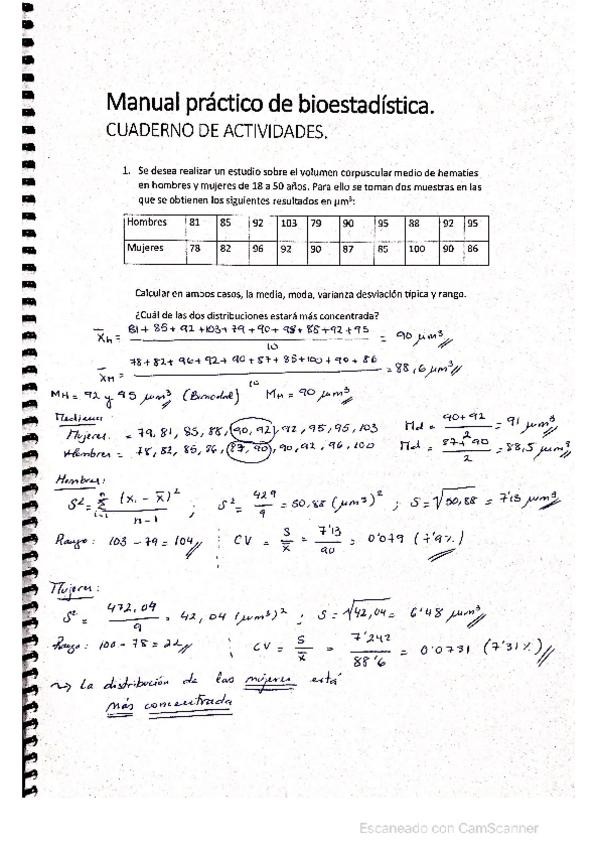 Manual práctico de bioestadística.
CUADERNO DE ACTIVIDADES.
1. Se desea realizar un estudio sobre el volumen corpuscular medio de hematíes
en hombres y mujeres de 18 a 50 años. Para ello se toman dos muestras en las
que se obtienen los siguientes resultados en µm³:
Hombres 81 85 92 103 79 90 95 88 92 95
Mujeres 78 82 96 92 90 87 85 100 90 86
Calcular en ambos casos, la media, moda, varianza desviación típica y rango.
¿Cuál de las dos distribuciones estará más concentrada?
X̄H = 81+85+92+103+79+90+95+88+92+95 / 10 = 90 µm³
X̄M = 78+82+96+92+90+87+85+100+90+86 / 10 = 88,6 µm³
MH = 92 y 95 µm³ (Bimodal) MM = 90 µm³
Mediana:
Mujeres = 79, 81, 85, 88, 90, 92, 92, 95, 95, 103 Md = 90+92 / 2 = 91 µm³
Hombres = 78, 82, 85, 86, 87, 90, 90, 92, 96, 100 Md = 87+90 / 2 = 88,5 µm³
Hombres:
S² = Σ (xi - x̄)² / n-1 ; S² = 429 / 9 = 50,88 (µm³)² ; S = √50,88 = 7'13 µm³
Rango: 103 - 79 = 104 CV = S / x̄ = 7'13 / 90 = 0'079 (7'9%)
Mujeres:
S² = 472,04 / 9 = 42,04 (µm³)² ; S = √42,04 = 6'48 µm³
Rango: 100 - 78 = 22 CV = S / x̄ = 7'242 / 88'6 = 0'0731 (7'31%)
~> La distribución de las mujeres está
más concentrada
Escaneado con CamScanner